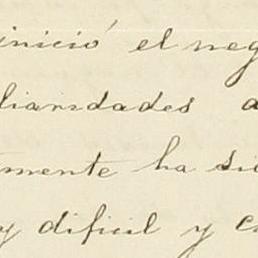 inició el neg
liaridades a
mente ha sid
y dificil y e